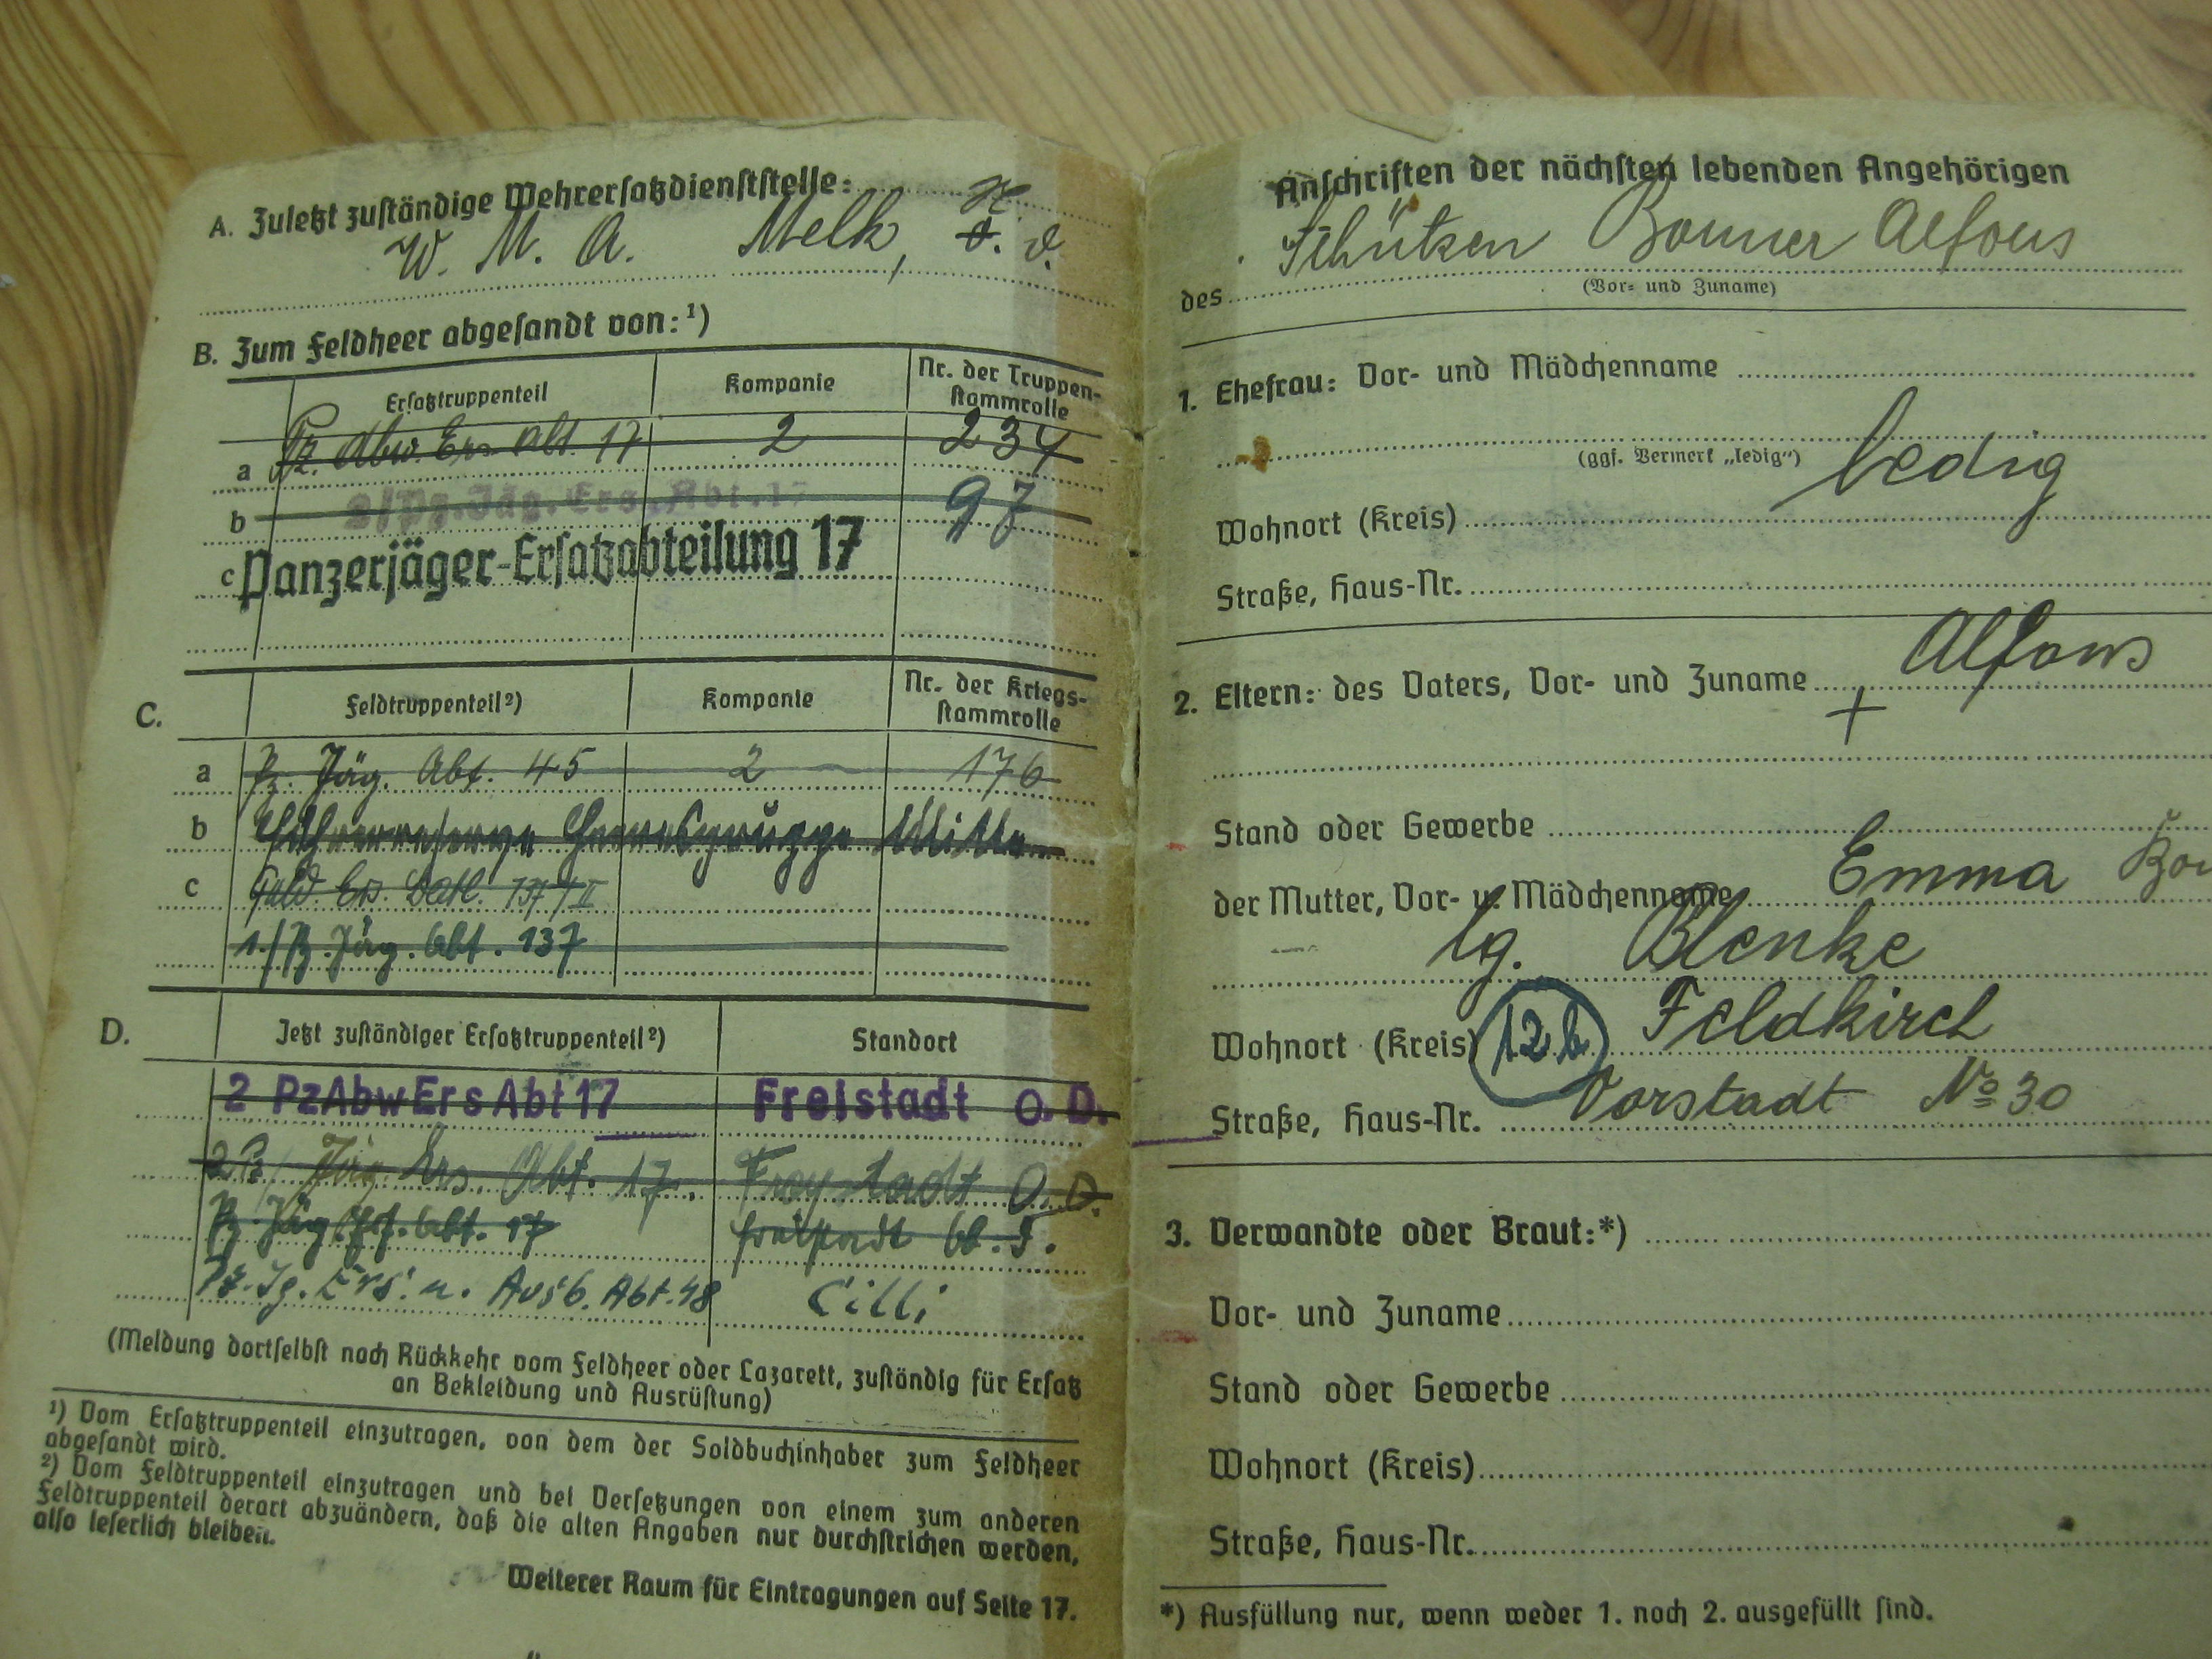 A. Zuletzt zuständige Wehrersatzdienststelle:
W. M. A. Melk, N. d. d.
B. Zum Feldheer abgesandt von:¹)
Ersatztruppenteil Kompanie Nr. der Truppen-
stammrolle
a Pz. Abw. Ers. Abt. 17 2 234
b 2/Pz.Jäg.Ers.Abt.17 97
c Panzerjäger-Ersatzabteilung 17
C. Feldtruppenteil²) Kompanie Nr. der Kriegs-
stammrolle
a Pz. Jäg. Abt. 45 2 176
b Führerreserve Heeresgruppe Mitte
c Feld. Ers. Batl. 137/II
1./Pz. Jäg. Abt. 137
D. Jetzt zuständiger Ersatztruppenteil²) Standort
2 PzAbwErsAbt 17 Freistadt O. D.
2 Pz. Jäg. Ers. Abt. 17. Freystadt O. D.
Pz. Jäg. Ers. Abt. 17 Freistadt
Pz. Jg. Ers. u. Ausb. Abt. 48 Cilli
(Meldung dortselbst nach Rückkehr vom Feldheer oder Lazarett, zuständig für Ersatz
an Bekleidung und Ausrüstung)
¹) Vom Ersatztruppenteil einzutragen, von dem der Soldbuchinhaber zum Feldheer
abgesandt wird.
²) Vom Feldtruppenteil einzutragen und bei Versetzungen von einem zum anderen
Feldtruppenteil derart abzuändern, daß die alten Angaben nur durchstrichen werden,
also leserlich bleiben.
Weiterer Raum für Eintragungen auf Seite 17.
Anschriften der nächsten lebenden Angehörigen
des Schützen Bonner Alfons
(Vor- und Zuname)
1. Ehefrau: Vor- und Mädchenname
(ggf. Vermerk „ledig") ledig
Wohnort (Kreis)
Straße, Haus-Nr.
2. Eltern: des Vaters, Vor- und Zuname + Alfons
Stand oder Gewerbe
der Mutter, Vor- u. Mädchenname Emma
lg. Blenke
Wohnort (Kreis) 12b Feldkirch
Straße, Haus-Nr. Vorstadt № 30
3. Verwandte oder Braut:*)
Vor- und Zuname
Stand oder Gewerbe
Wohnort (Kreis)
Straße, Haus-Nr.
*) Ausfüllung nur, wenn weder 1. noch 2. ausgefüllt sind.